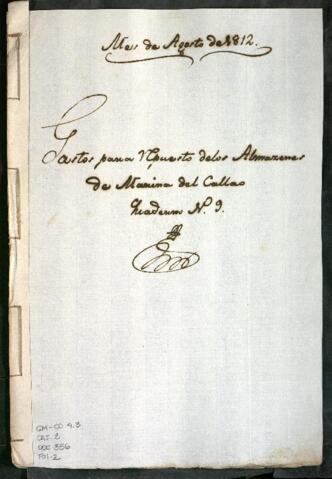 Mes de Agosto de 1812.
Gastos para Rpuesto delos Almazenes
de Marina del Callao
Quaderno N. 9.
GM-CO 4.3
CAJ. 2
DOC 356
FOL-2